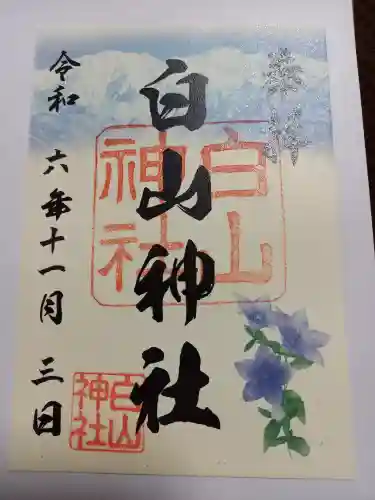 奉拝
白山神社
白山神社
令和六年十一月三日
白山神社